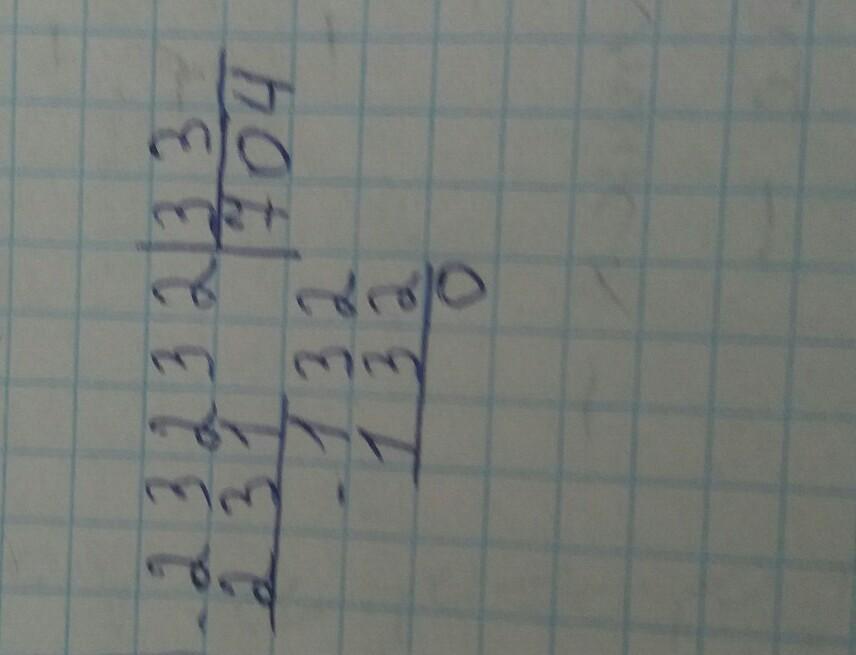 -23232|33
231|704
-132
132
0